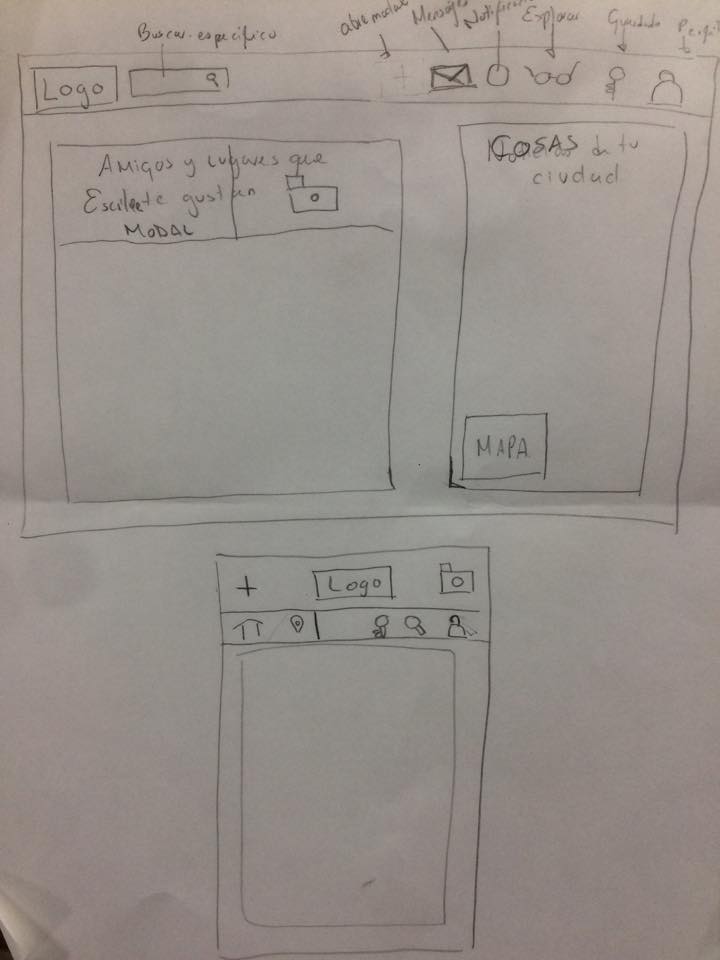 Buscar especifico
abre modal
Mensajes
Notifica
Explorar
Guardado
Perfil
Logo
Amigos y lugares que
te gustan
MODAL
COSAS de tu
ciudad
MAPA
Logo